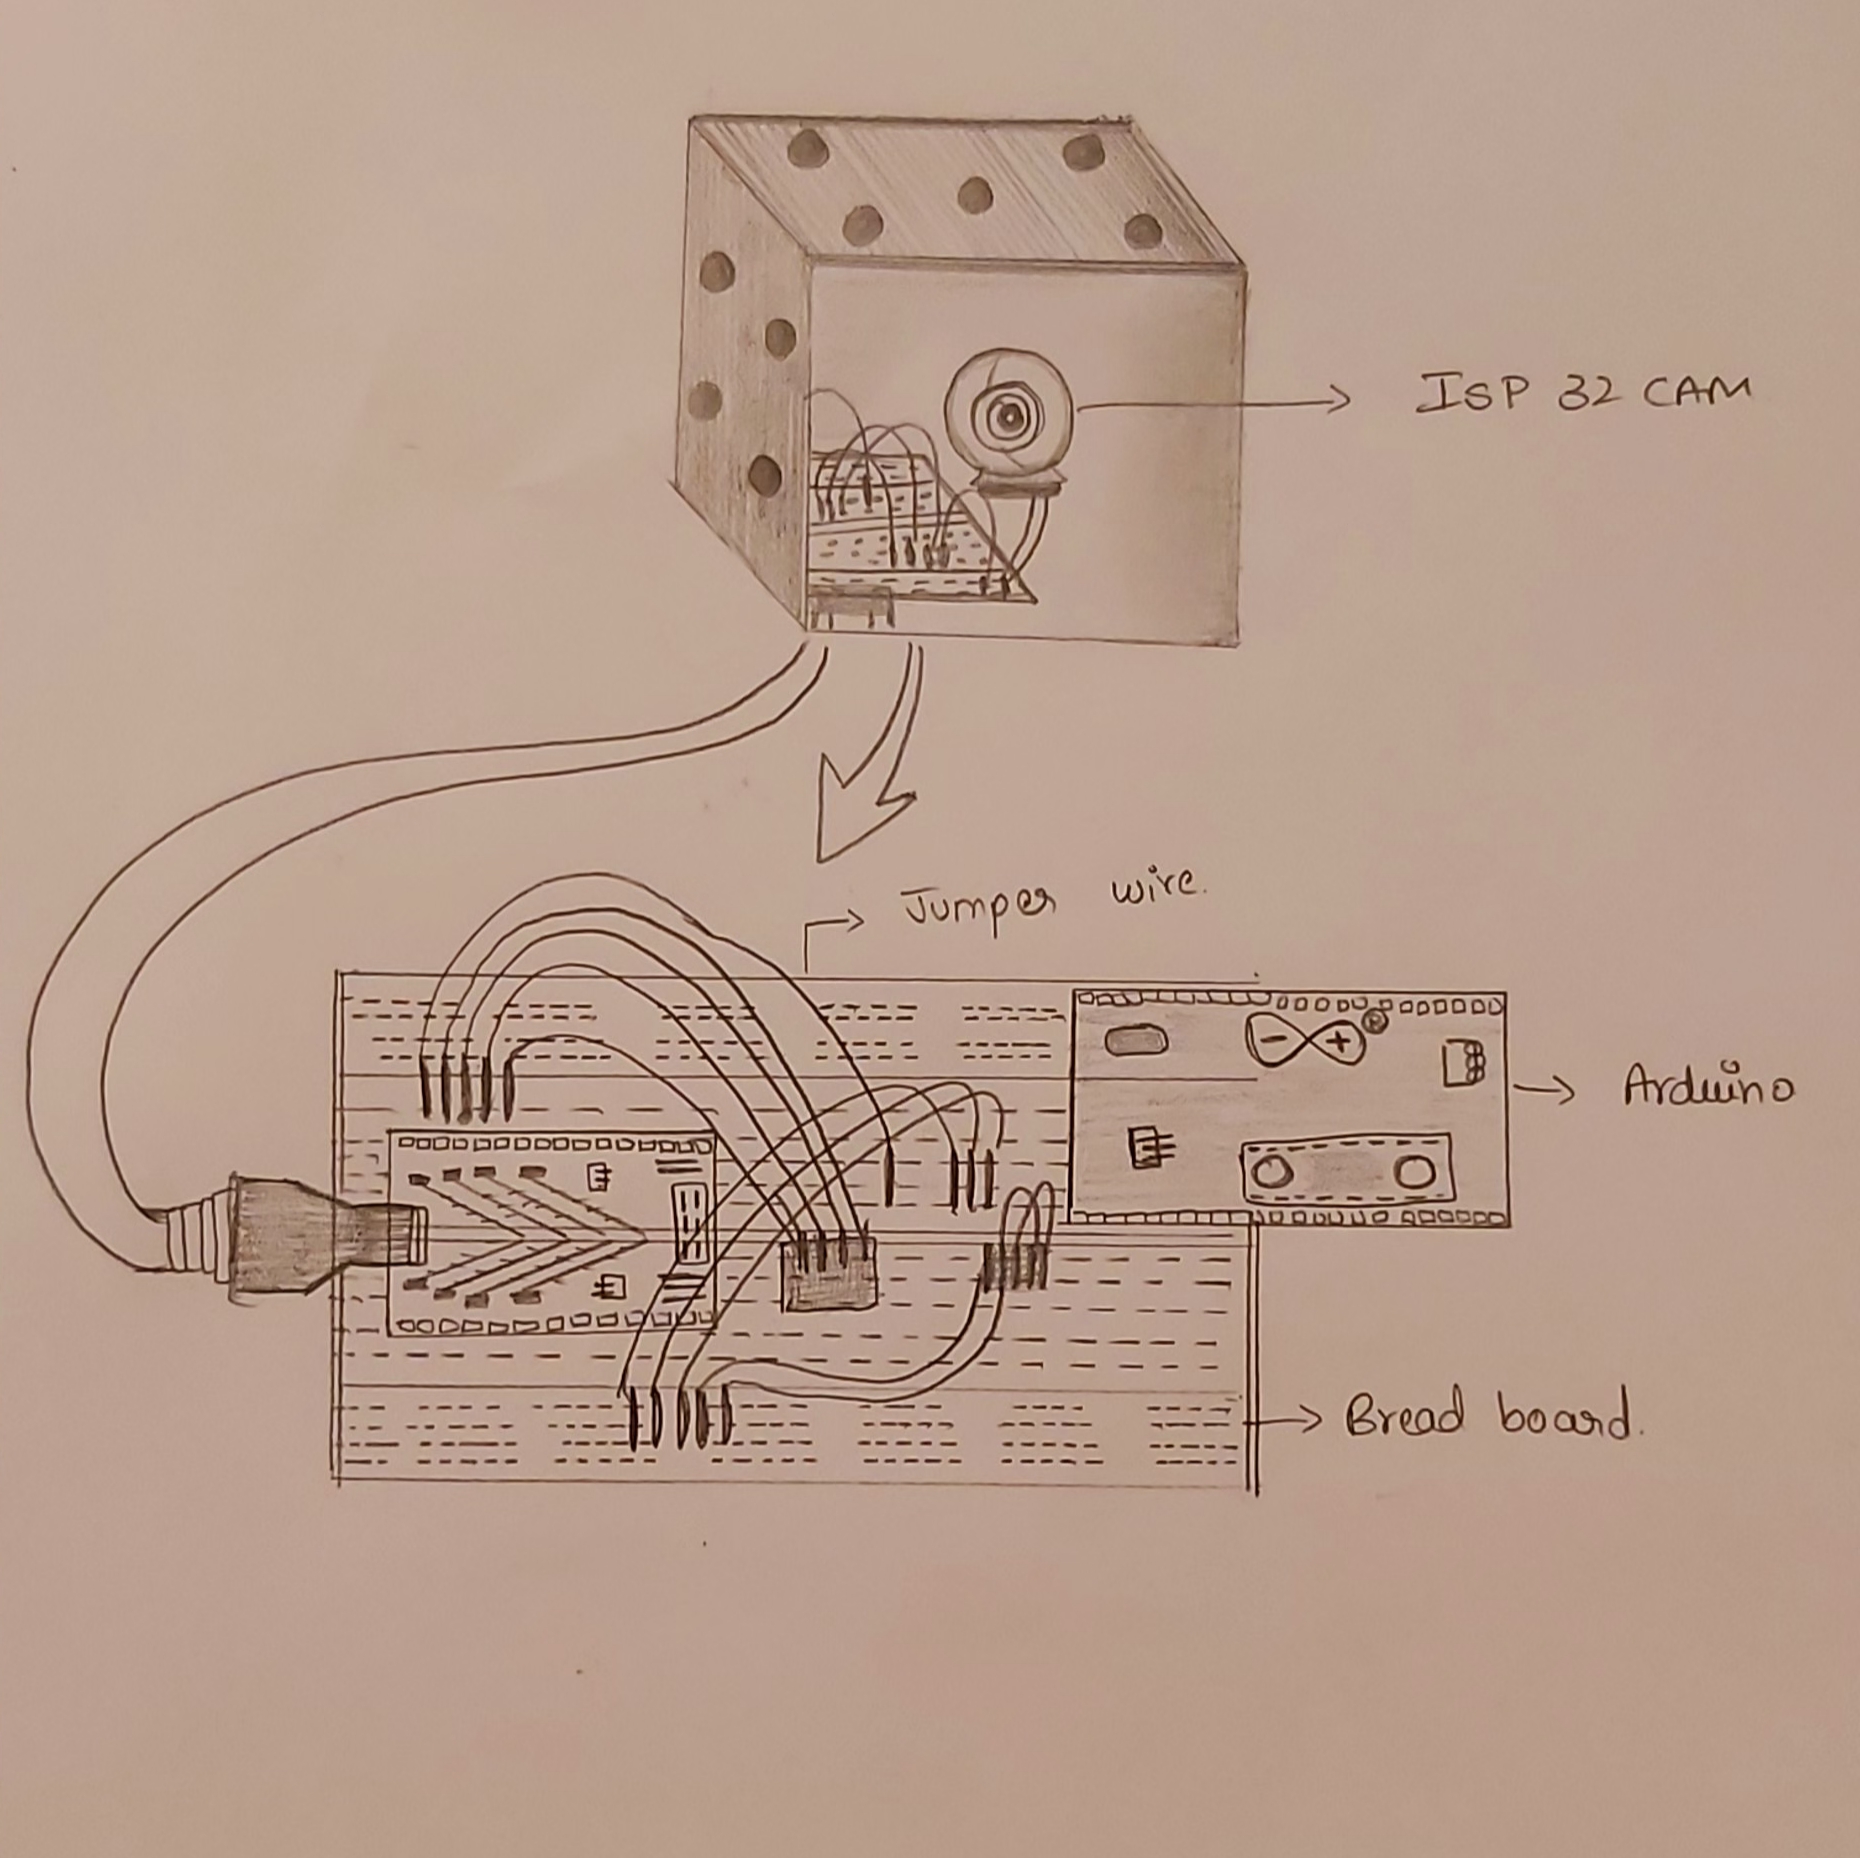 ISP 32 CAM
Jumper wire.
Arduino
Bread board.